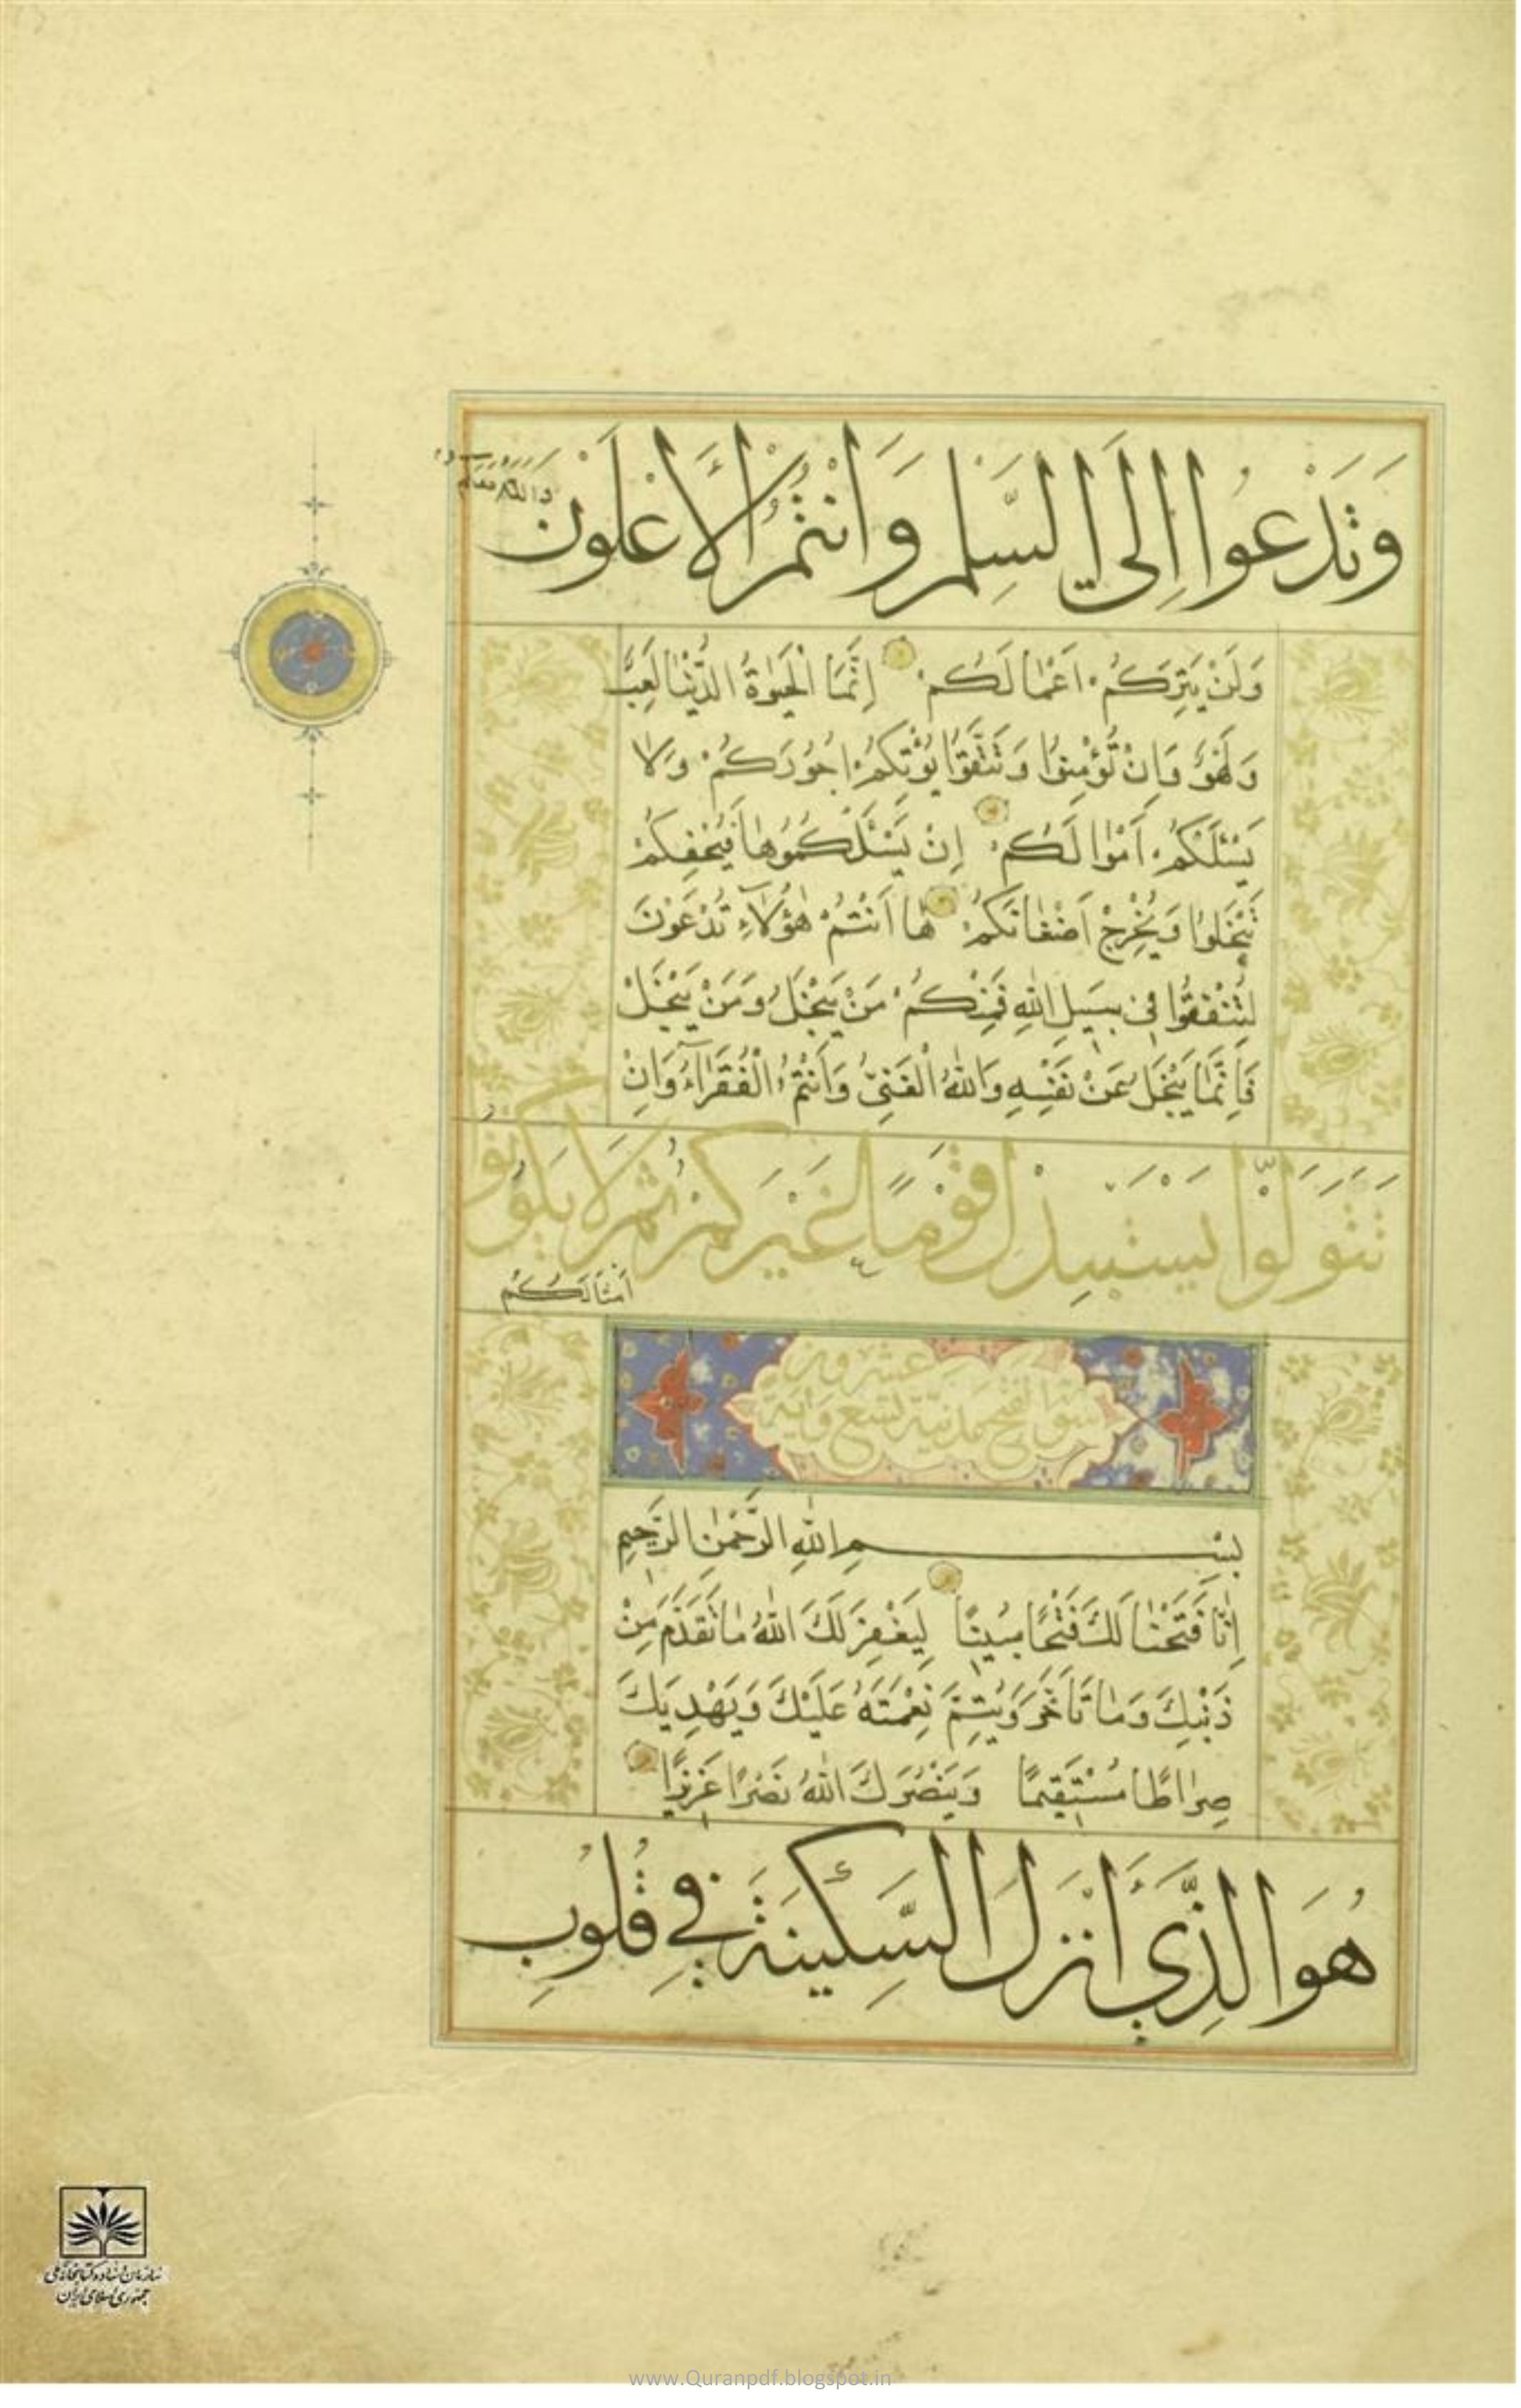 وَتَدْعُوا اِلَى السَّلْمِ وَاَنْتُمُ الْاَعْلَوْنَ
وَاللّٰهُ مَعَكُمْ
وَلَنْ يَتِرَكُمْ اَعْمٰالَكُمْ اِنَّمَا الْحَيٰوةُ الدُّنْيٰا لَعِبٌ
وَلَهْوٌ وَاِنْ تُؤْمِنُوا وَتَتَّقُوا يُؤْتِكُمْ اُجُورَكُمْ وَلٰا
يَسْئَلْكُمْ اَمْوٰالَكُمْ اِنْ يَسْئَلْكُمُوهٰا فَيُحْفِكُمْ
تَبْخَلُوا وَيُخْرِجْ اَضْغٰانَكُمْ هٰا اَنْتُمْ هٰؤُلٰاۤءِ تُدْعَوْنَ
لِتُنْفِقُوا فِي سَبِيلِ اللّٰهِ فَمِنْكُمْ مَنْ يَبْخَلُ وَمَنْ يَبْخَلْ
فَاِنَّمٰا يَبْخَلُ عَنْ نَفْسِهِ وَاللّٰهُ الْغَنِيُّ وَاَنْتُمُ الْفُقَرٰاۤءُ وَاِنْ
تَتَوَلَّوْا يَسْتَبْدِلْ قَوْمًا غَيْرَكُمْ ثُمَّ لَا يَكُونُوا
اَمْثَالَكُمْ
سورة الفتح مدنية تسع وعشرون اية
بِسْمِ اللّٰهِ الرَّحْمٰنِ الرَّحِيمِ
اِنّٰا فَتَحْنٰا لَكَ فَتْحًا مُبِينًا لِيَغْفِرَ لَكَ اللّٰهُ مٰا تَقَدَّمَ مِنْ
ذَنْبِكَ وَمٰا تَاَخَّرَ وَيُتِمَّ نِعْمَتَهُ عَلَيْكَ وَيَهْدِيَكَ
صِرٰاطًا مُسْتَقِيمًا وَيَنْصُرَكَ اللّٰهُ نَصْرًا عَزِيزًا
هُوَ الَّذِي اَنْزَلَ السَّكِينَةَ فِي قُلُوبِ
سازمان اسناد و کتابخانه ملی
جمهوری اسلامی ایران
www.Quranpdf.blogspot.in